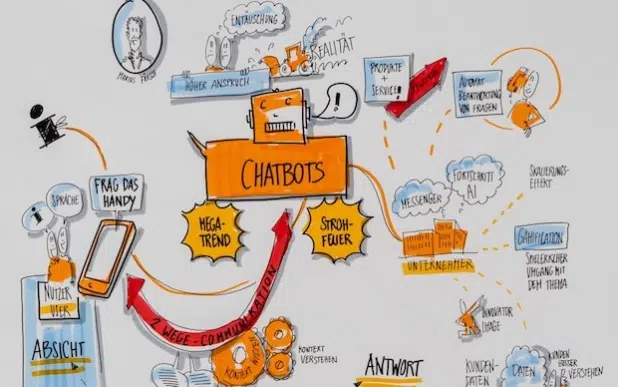 ENTÄUSCHUNG
REALITÄT
HOHER ANSPRUCH
!
CHATBOTS
MEGA-
TREND
STROH-
FEUER
PRODUKTE +
SERVICE
AUTOMAT.
BEANTWORTUNG
VON FRAGEN
MESSENGER
FORTSCHRITT
AI
UNTERNEHMER
SKALIERUNGS-
EFFEKT
GAMIFICATION
SPIELERISCHER
UMGANG MIT
DEM THEMA
INNOVATOR
IMAGE
i
i
SPRACHE
FRAG DAS
HANDY
NUTZER
USER
ABSICHT
2 WEGE-COMMUNIKATION
KONTEXT
VERSTEHEN
ANTWORT
KUNDEN-
DATEN
DATEN
KUNDEN
BESSER
VERSTEHEN